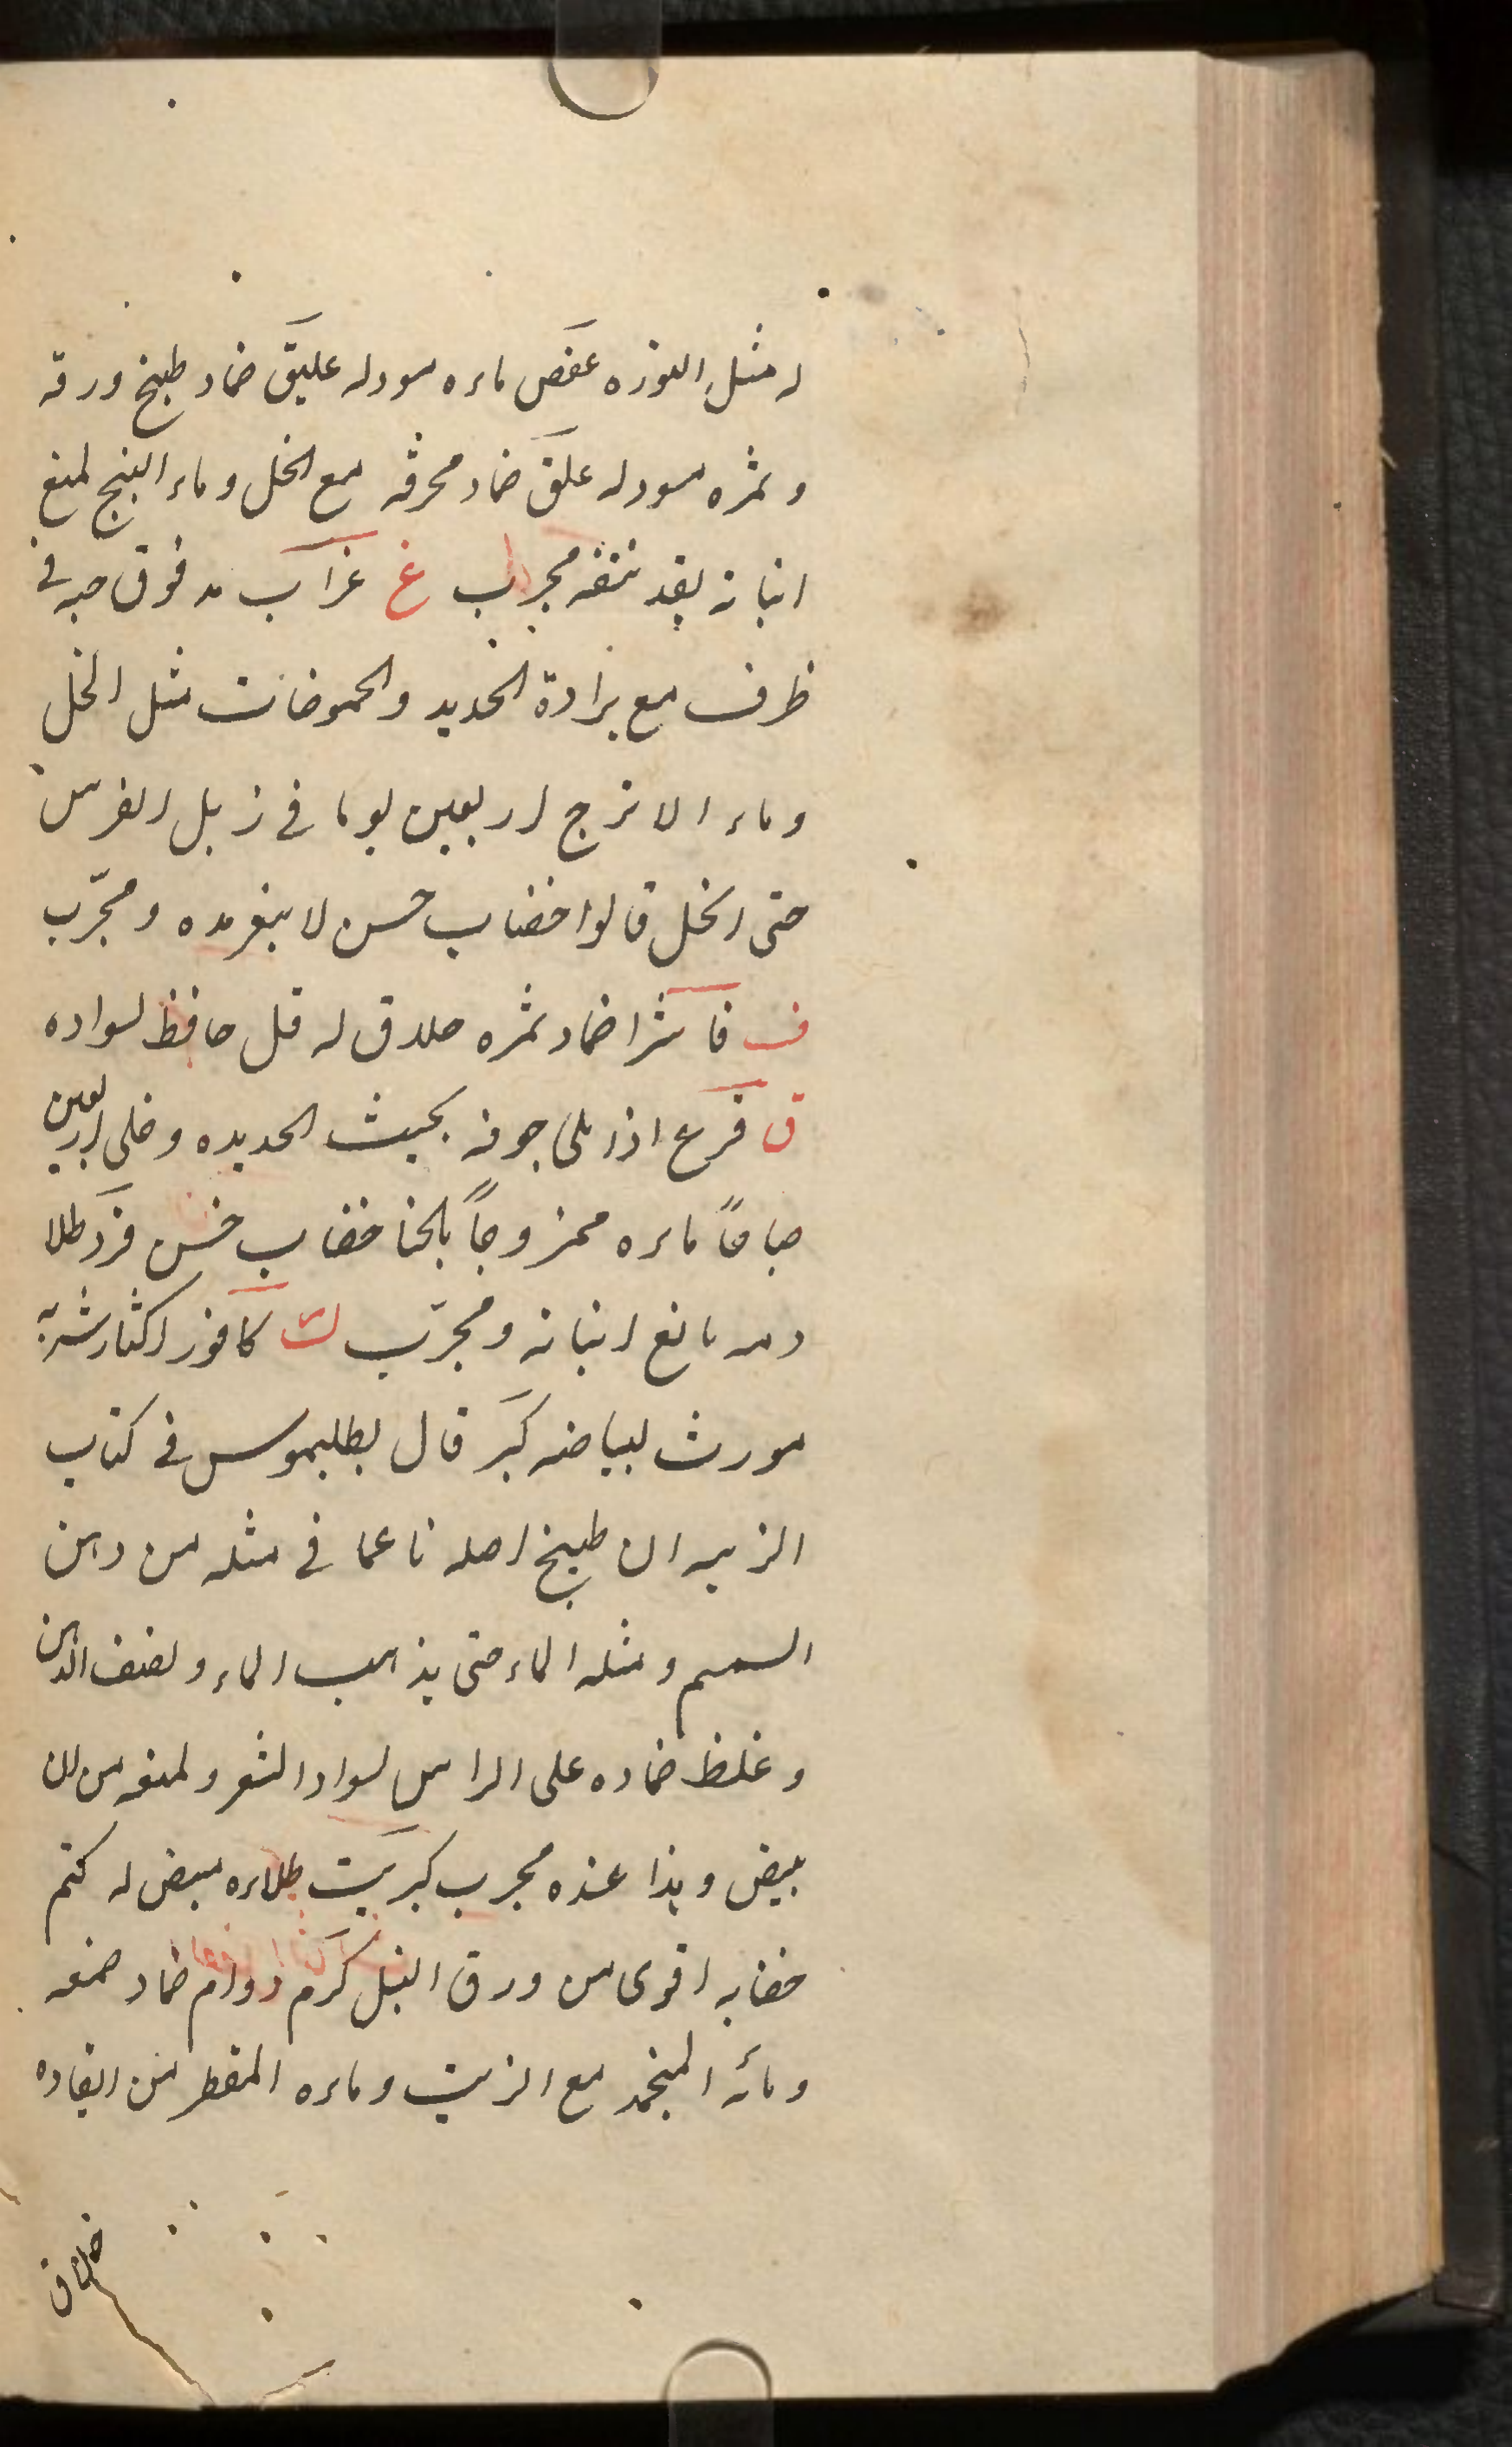 له مثل النوره عفص ماءه مسود له عليق ضماد طبيخ ورقه
وثمره مسود له علق ضماد محرقه مع الخل وماء البنج لمنع
انباته بعد نتفه مجرب غ غراب مدفوق حبه في
ظرف مع برادة الحديد والحموضات مثل الخل
وماء الاترج اربعين يوما في زبل الفرس
حتى انحل قالوا خضاب حسن لا يتغير مده ومجرّب
ف فاشرا ضماد ثمره حلاق له قل حافظ لسواده
ق قرع اذا ملئ جوفه بخبث الحديده وخلى اربعين
صباحاً ماءه ممزوجاً بالحنا خضاب حسن قرد طلا
دمه مانع انباته ومجرّب ك كافور اكثار شربه
مورث لبياضه كبر قال بطليموس في كتاب
الزينه ان طبيخ اصله ناعما في مثله من دهن
السمسم ومثله الماء حتى يذهب الماء ونصف الدهن
وغلظ ضماده على الراس لسواد الشعر ولمنعه من ان
يبيض وهذا عنده مجرب كبريت طلاءه مبيض له كتم
خضابه اقوى من ورق النيل كرم دوام ضماد صمغه
ومائه المنجمد مع الزيت وماءه المقطر من ايقاده
حلاق